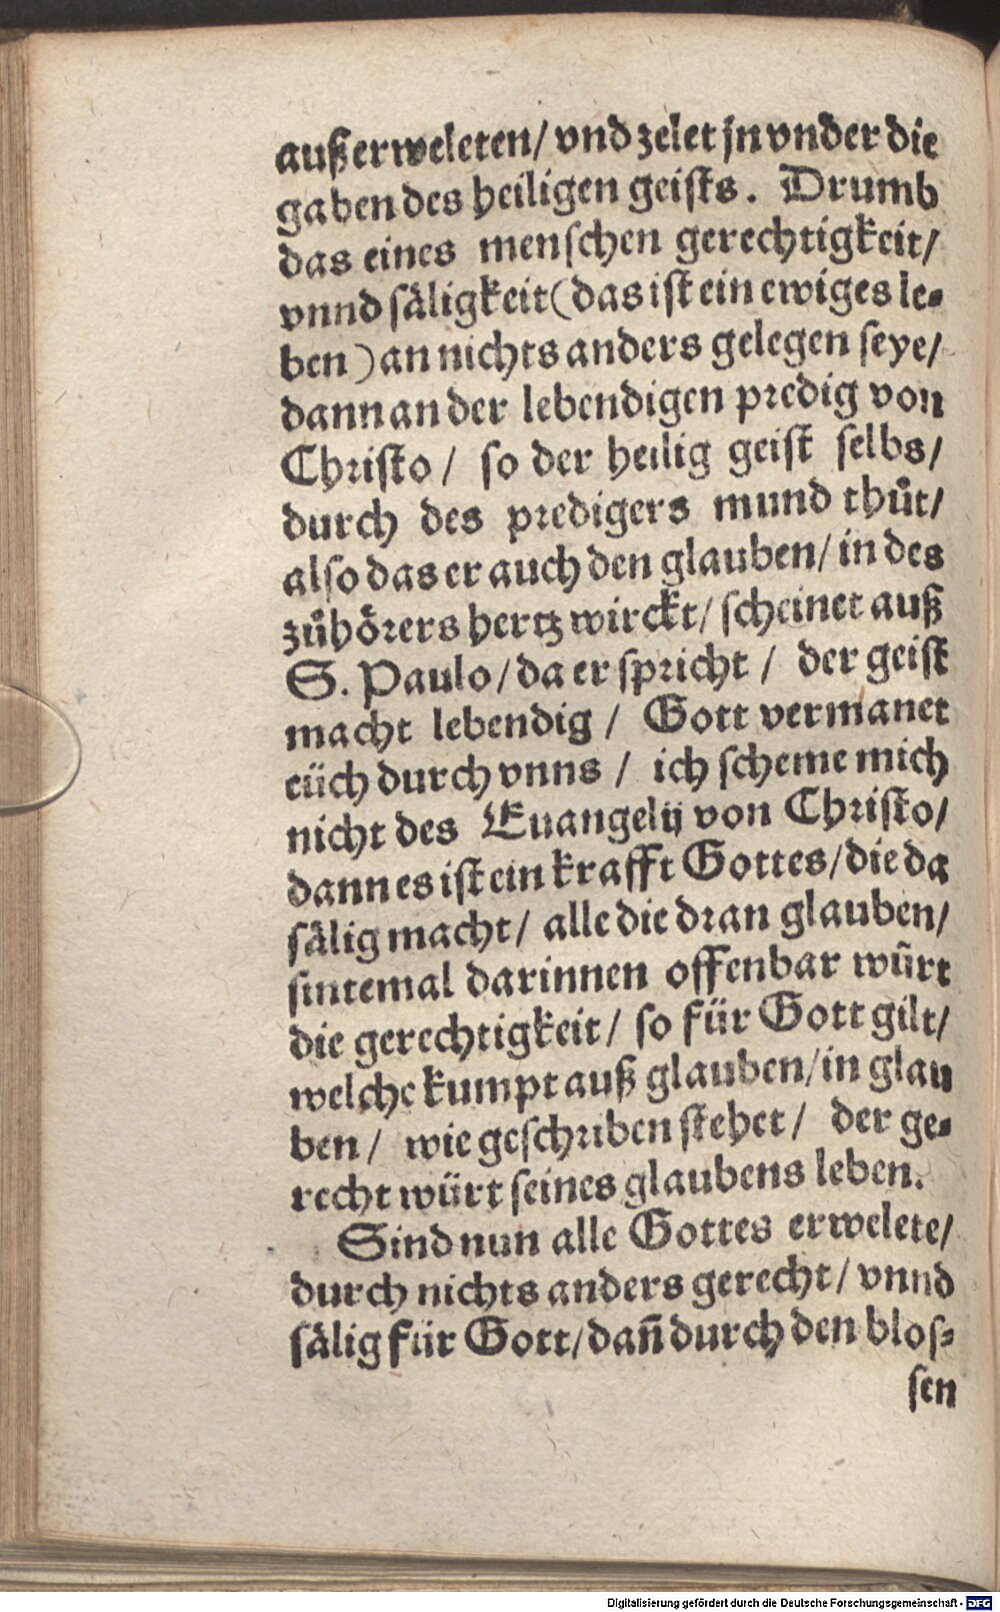 außerweleten/ vnd zelet jn vnder die
gaben des heiligen geists. Drumb
das eines menschen gerechtigkeit/
vnnd säligkeit (das ist ein ewiges le⸗
ben) an nichts anders gelegen seye/
dann an der lebendigen predig von
Christo/ so der heilig geist selbs/
durch des predigers mund thůt/
also das er auch den glauben/ in des
zůhörers hertz wirckt/ scheinet auß
S. Paulo/ da er spricht/ der geist
macht lebendig/ Gott vermanet
eüch durch vnns/ ich scheme mich
nicht des Euangelij von Christo/
dann es ist ein krafft Gottes/ die da
sälig macht/ alle die dran glauben/
sintemal darinnen offenbar würt
die gerechtigkeit/ so für Gott gilt/
welche kumpt auß glauben/ in glau
ben/ wie geschriben stehet/ der ge⸗
recht würt seines glaubens leben.
Sind nun alle Gottes erwelete/
durch nichts anders gerecht/ vnnd
sälig für Gott/ dañ durch den blos⸗
sen
Digitalisierung gefördert durch die Deutsche Forschungsgemeinschaft - DFG